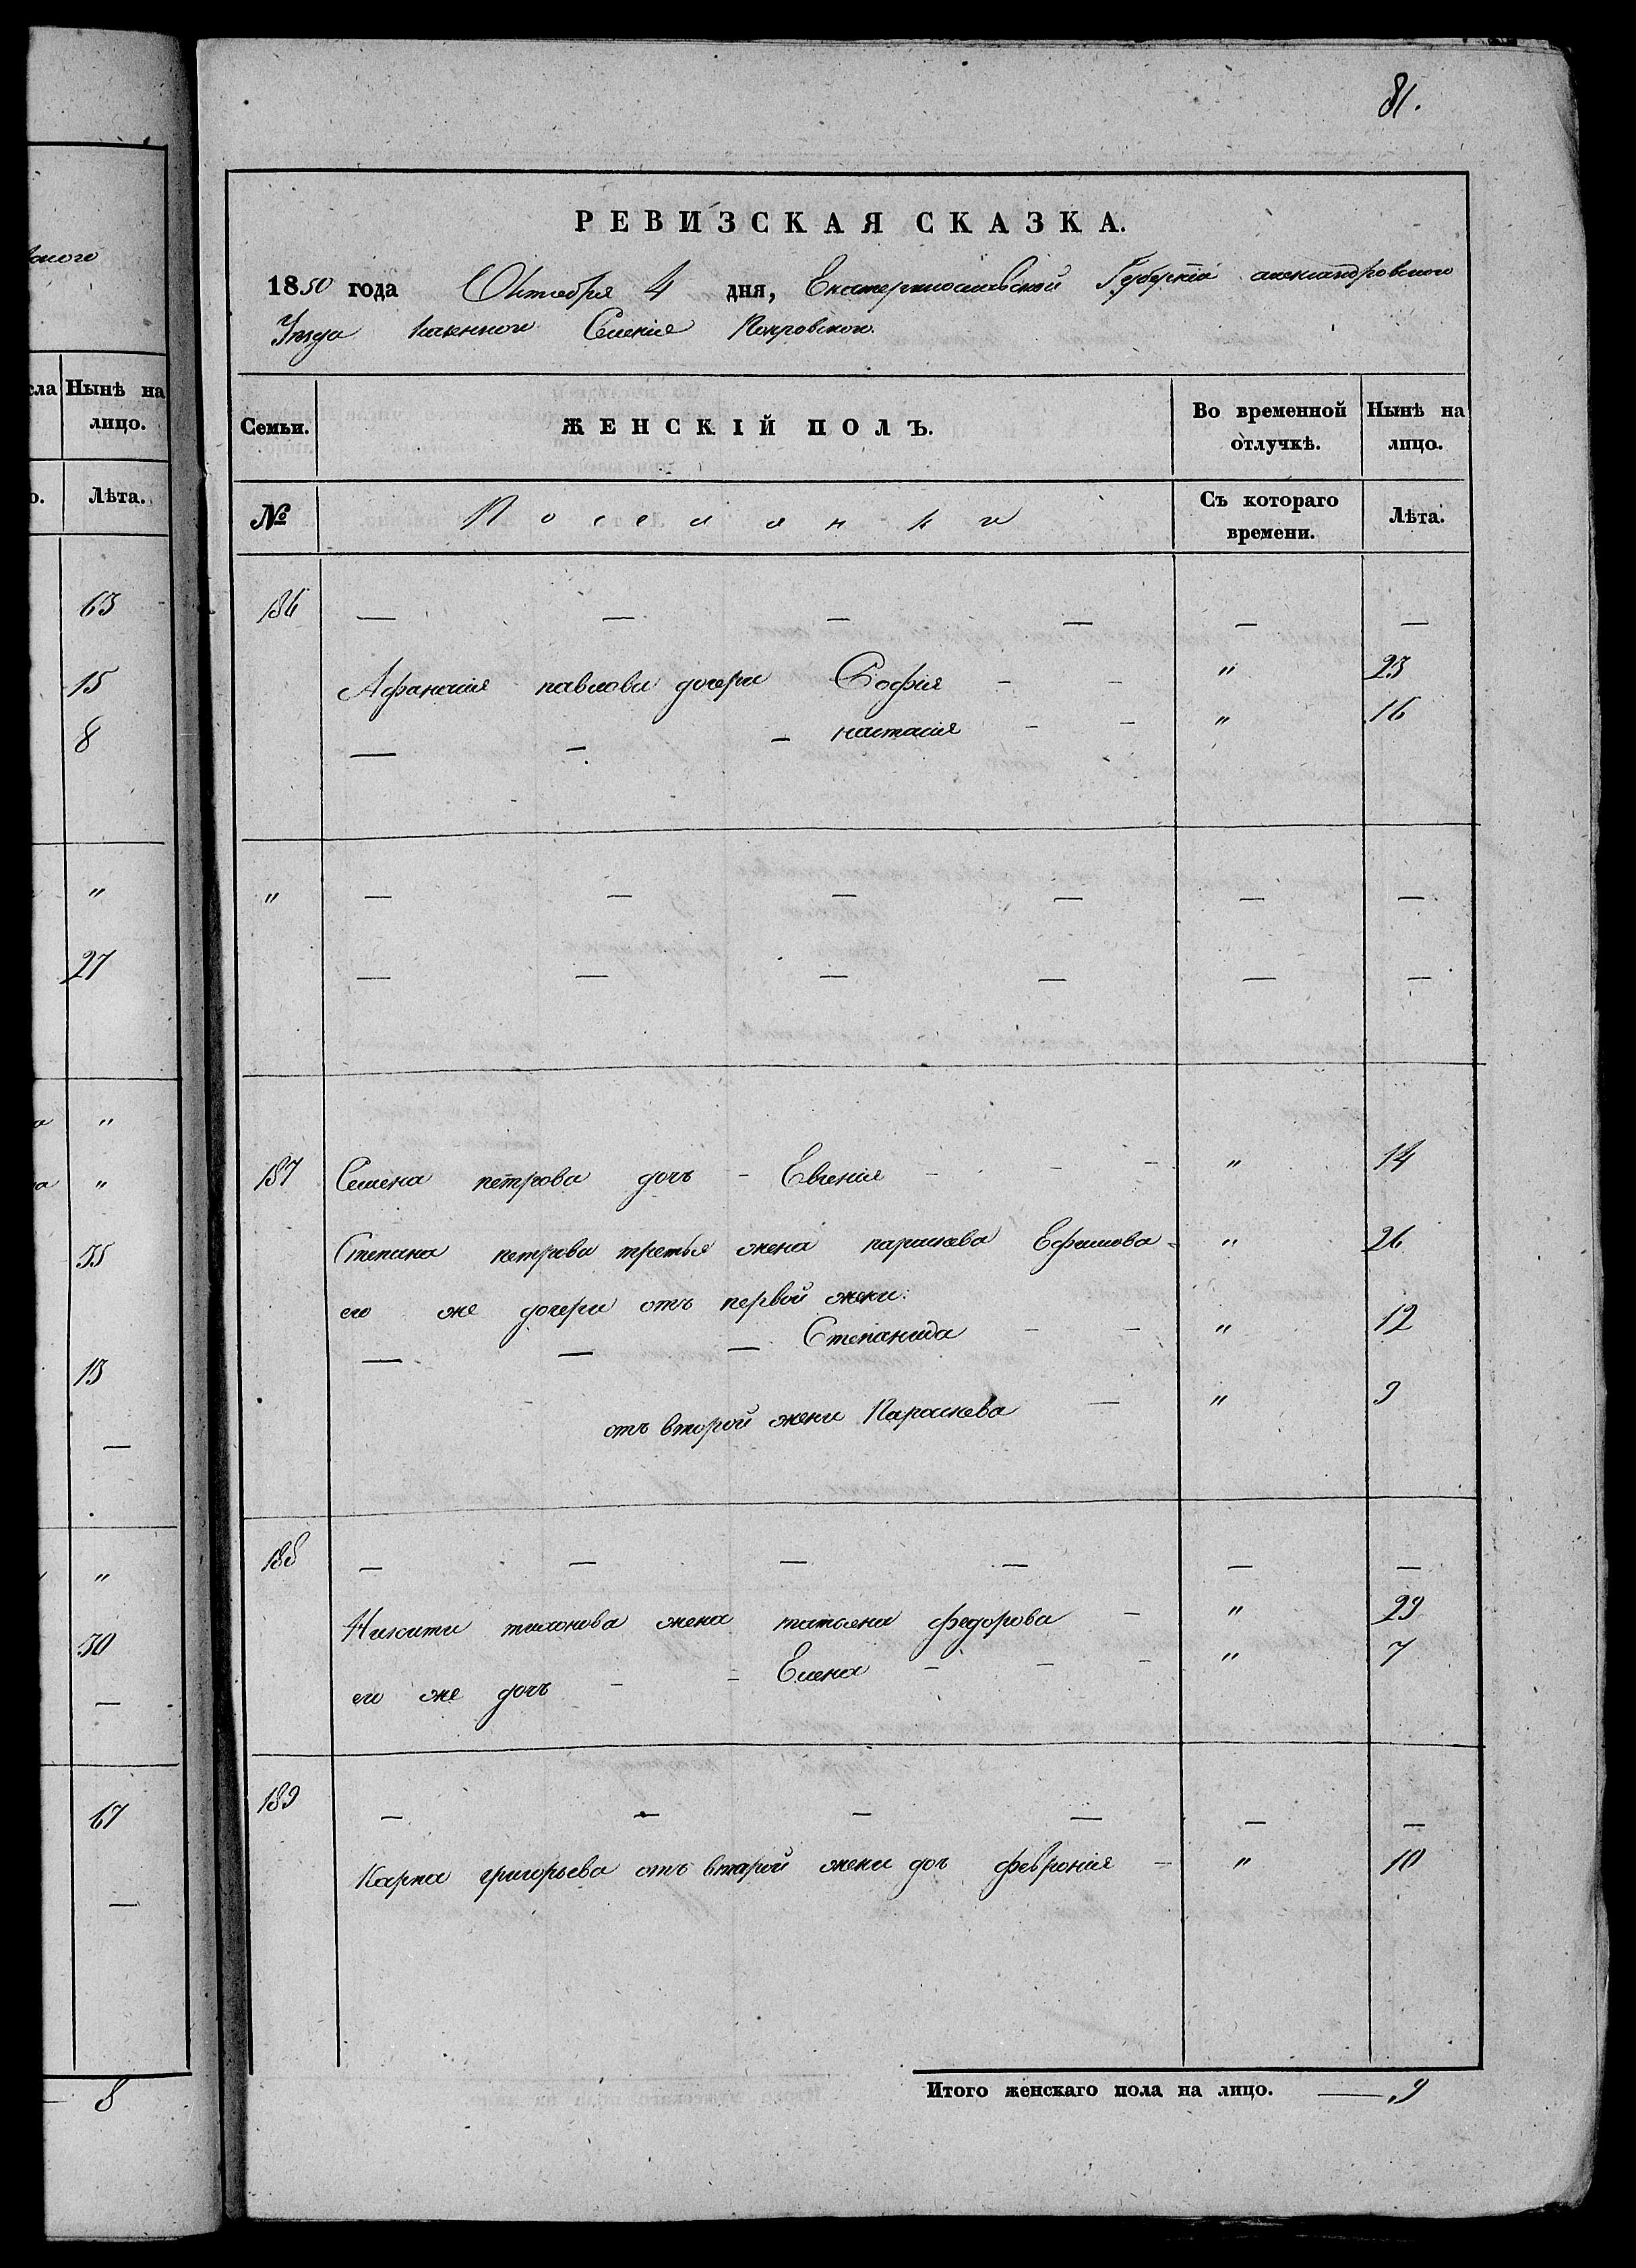 ского
сла Нынѣ на
лицо.
о. Лѣта.
63
15
8
"
27
а "
ва "
35
13
—
"
30
—
67
—
— 8
81.
РЕВИЗСКАЯ СКАЗКА.
1850 года Октября 4 дня, Екатеринославской Губерніи александровского
Уезда казенного Селенія Покровского.
Семьи. ЖЕНСКІЙ ПОЛЪ. Во временной отлучкѣ. Нынѣ на лицо.
№ Поселянки Съ котораго времени. Лѣта.
186 — — — — — —
Афанасія павлова дочери София - - " 23
— — — настасия - - " 16
" — — — — — —
— — — — — —
187 Семена петрова дочъ - Евгения - - - " 14
Степана петрова третья жена параскева Ефимова - " 26
его же дочери отъ первой жени:
— — — Степанида - - " 12
отъ второй жени Параскева — " 9
188 — — — — — —
Никити тихонова жена татьяна федорова - " 29
его же дочъ - - Елена - - - " 7
189 — — — — — —
Карпа григорьева отъ второй жени доч феврония - " 10
Итого женскаго пола на лицо. — 9